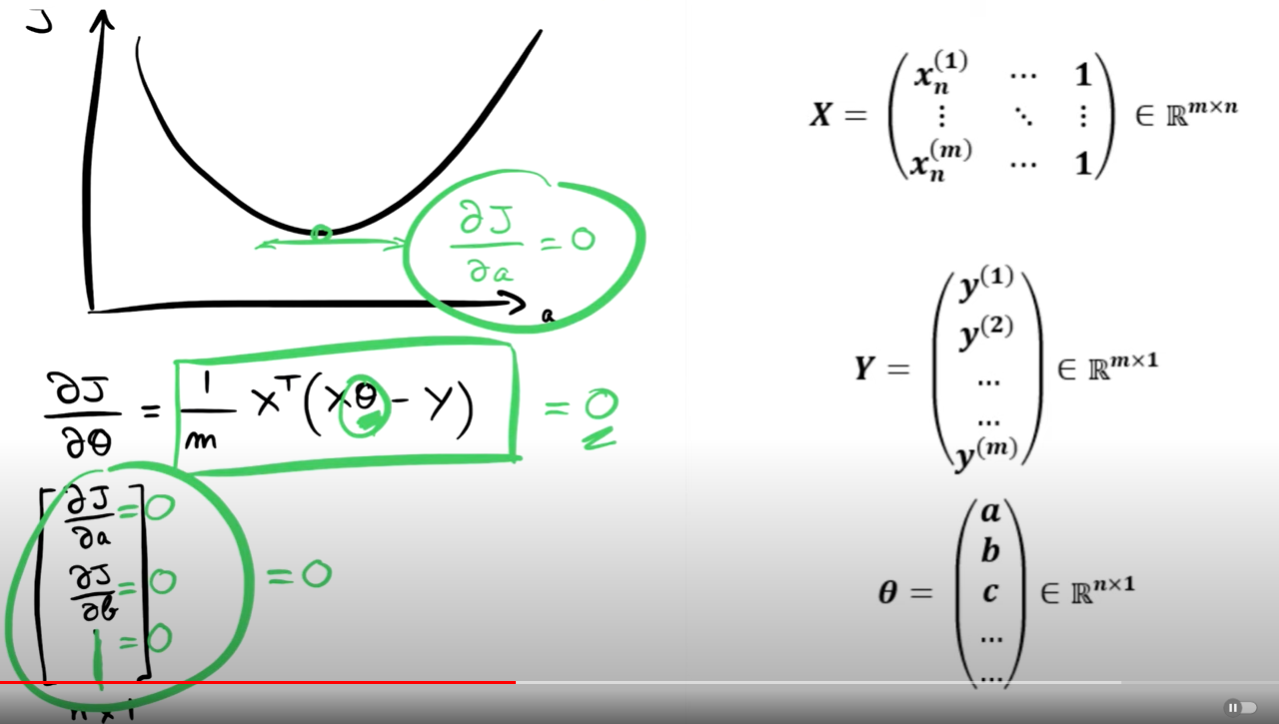 J
∂J/∂a = 0
a
∂J/∂θ = 1/m X^T(Xθ - Y) = 0
[∂J/∂a = 0
∂J/∂b = 0
= 0] = 0
n x 1
X = (x_n^(1) ⋯ 1
⋮ ⋱ ⋮
x_n^(m) ⋯ 1) ∈ ℝ^{m×n}
Y = (y^(1)
y^(2)
...
...
y^(m)) ∈ ℝ^{m×1}
θ = (a
b
c
...
...) ∈ ℝ^{n×1}